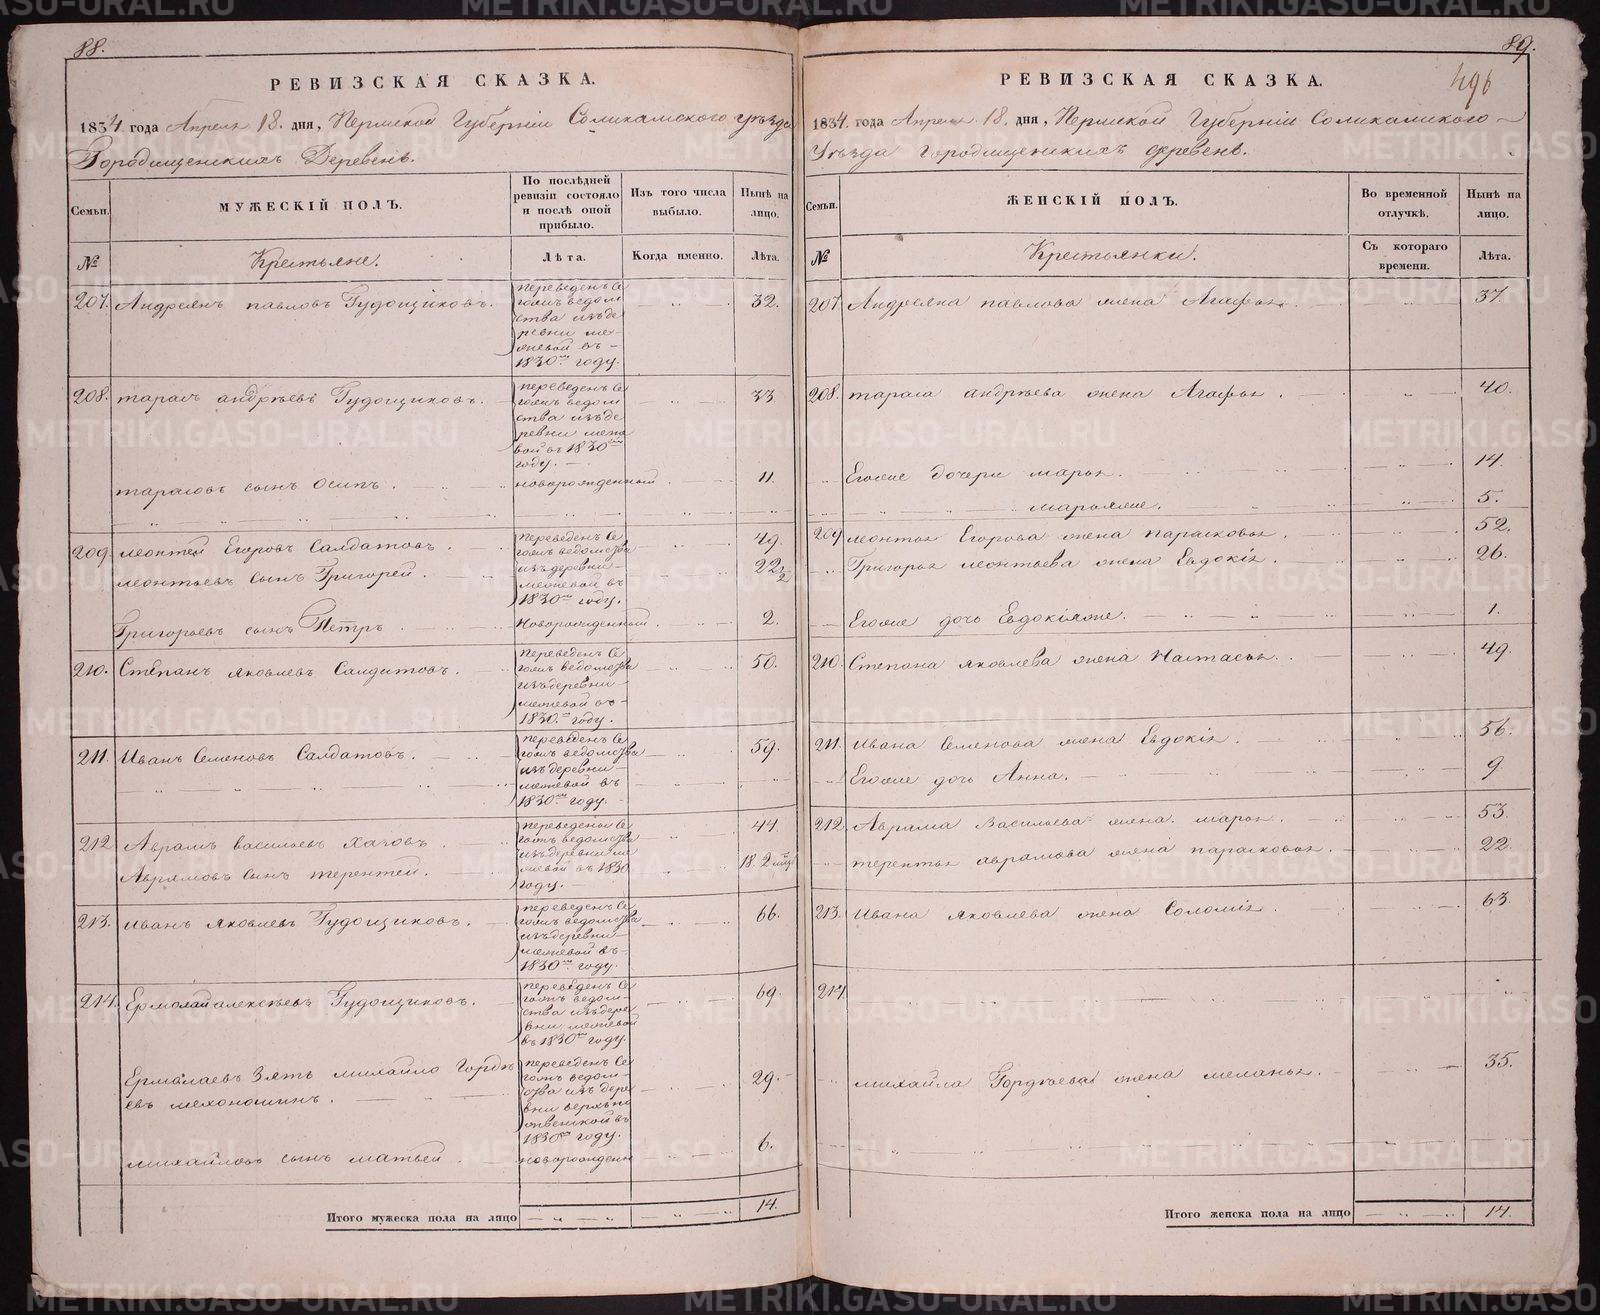 88.
РЕВИЗСКАЯ СКАЗКА.
1834. года Апреля 18. дня, Пермской Губерніи Соликамского уѣзда
Городищенскихъ Деревень.
Семьи.
МУЖЕСКІЙ ПОЛЪ.
По послѣдней ревизіи состояло и послѣ оной прибыло.
Изъ того числа выбыло.
Нынѣ на лицо.
№
Крестьяне.
Лѣта.
Когда именно.
Лѣта.
207. Андреянъ павловъ Гудощиковъ.
переведенъ се
гомъ ведом
ства изъ де
ревни ме-
жевой въ -
1830го году.
32.
208. тарасъ андрѣевъ Гудощиковъ.
переведенъ се
гомъ ведом
ства изъ де
ревни меже
вой въ 1830го
году. -
33
тарасовъ сынъ Осипъ. новорожденный 11.
209. леонтей Егоровъ Салдатовъ. 49.
леонтьевъ сынъ Григорей.
переведенъ се
гомъ ведомства
изъ деревни -
межевой въ
1830го году.
Григорьевъ сынъ Петръ новорожденный. 2.
210. Степанъ яковлевъ Салдатовъ.
переведенъ се
гомъ ведомства
изъ деревни -
межевой въ -
1830. году.
50.
211. Иванъ Семеновъ Салдатовъ.
переведенъ се
гомъ ведомства
изъ деревни -
межевой въ
1830го году.
59.
212. Аврамъ васильевъ Хаховъ. 44.
Аврамовъ сынъ терентей. 18.
переведены се
гомъ ведомства
изъ деревни ме
жевой въ 1830
году. -
213. Иванъ Яковлевъ Гудощиковъ.
переведенъ се
гомъ ведомства
изъ деревни -
межевой въ -
1830го году.
66.
214. Ермолай алексѣевъ Гудощиковъ.
переведенъ се
гомъ ведом-
ства изъ дере
вни межевой
въ 1830го году.
69.
Ермолаевъ Зять михайло Гордѣ
евъ мехоношинъ.
переведенъ се
гомъ ведом-
ства изъ дере
вни
въ
1830го году.
29.
михайловъ сынъ матвей новорожденн 6.
Итого мужеска пола на лицо 14.
89.
496
РЕВИЗСКАЯ СКАЗКА.
1834. года Апреля 18. дня, Пермской Губерніи Соликамского -
Уѣзда Городищенскихъ деревень.
Семьи.
ЖЕНСКІЙ ПОЛЪ.
Во временной отлучкѣ.
Нынѣ на лицо.
№
Крестьянки.
Съ котораго времени.
Лѣта.
207 Андреяна павлова жена Агафья 37.
208. тараса андрѣева жена Агафья. 40.
Егоже дочери марья. 14.
марьяже. 5.
209 леонтья Егорова жена парасковья. 52.
Григорья леонтьева жена Евдокія. 26.
Егоже дочь Евдокіяже. 1.
210. Степана яковлева жена Настасья. 49.
211. Ивана Семенова жена Евдокія. 56.
Егоже дочь Анна. 9
212. Аврама Васильева жена марья. 53.
терентья аврамова жена парасковья. 22.
213. Ивана яковлева жена Соломія 63.
214.
михайла Гордѣева жена меланья. 35.
Итого женска пола на лицо 14.
METRIKI.GASO-URAL.RU